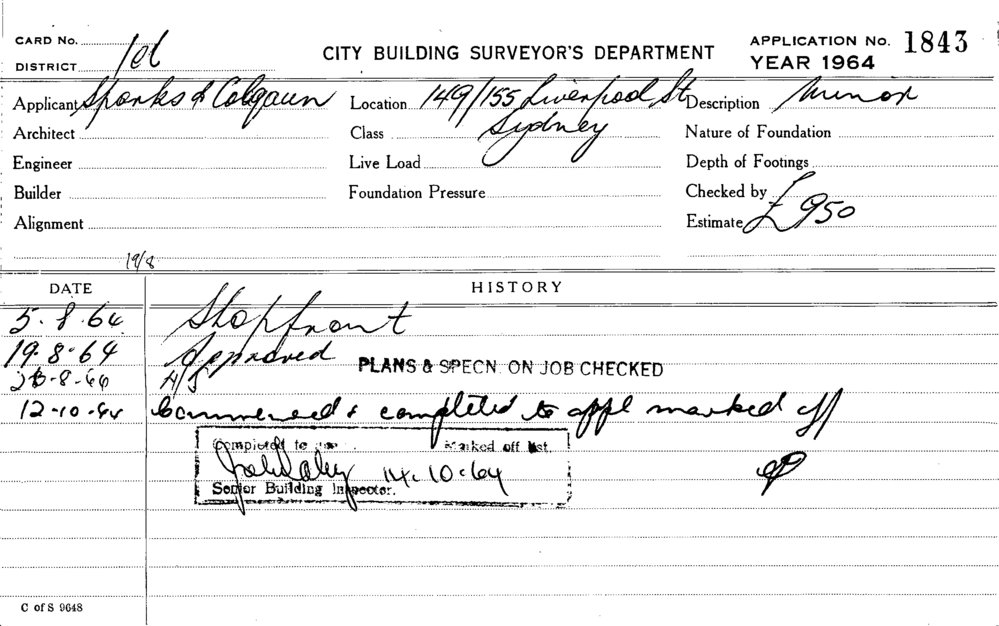 CARD No. 1el
CITY BUILDING SURVEYOR'S DEPARTMENT
APPLICATION No. 1843
DISTRICT
YEAR 1964
Applicant Sparks & Colgaun Location 149/155 Liverpool St Description Minor
Architect Class Sydney Nature of Foundation
Engineer Live Load Depth of Footings
Builder Foundation Pressure Checked by
Alignment Estimate £950
19/8
DATE HISTORY
5.8.64 Shopfront
19.8.64 Approved PLANS & SPECN. ON JOB CHECKED
-8-64
12-10-64 Commenced & completed to appl marked off
Completed to Marked off list.
14.10.64
Senior Building Inspector.
C of S 9648